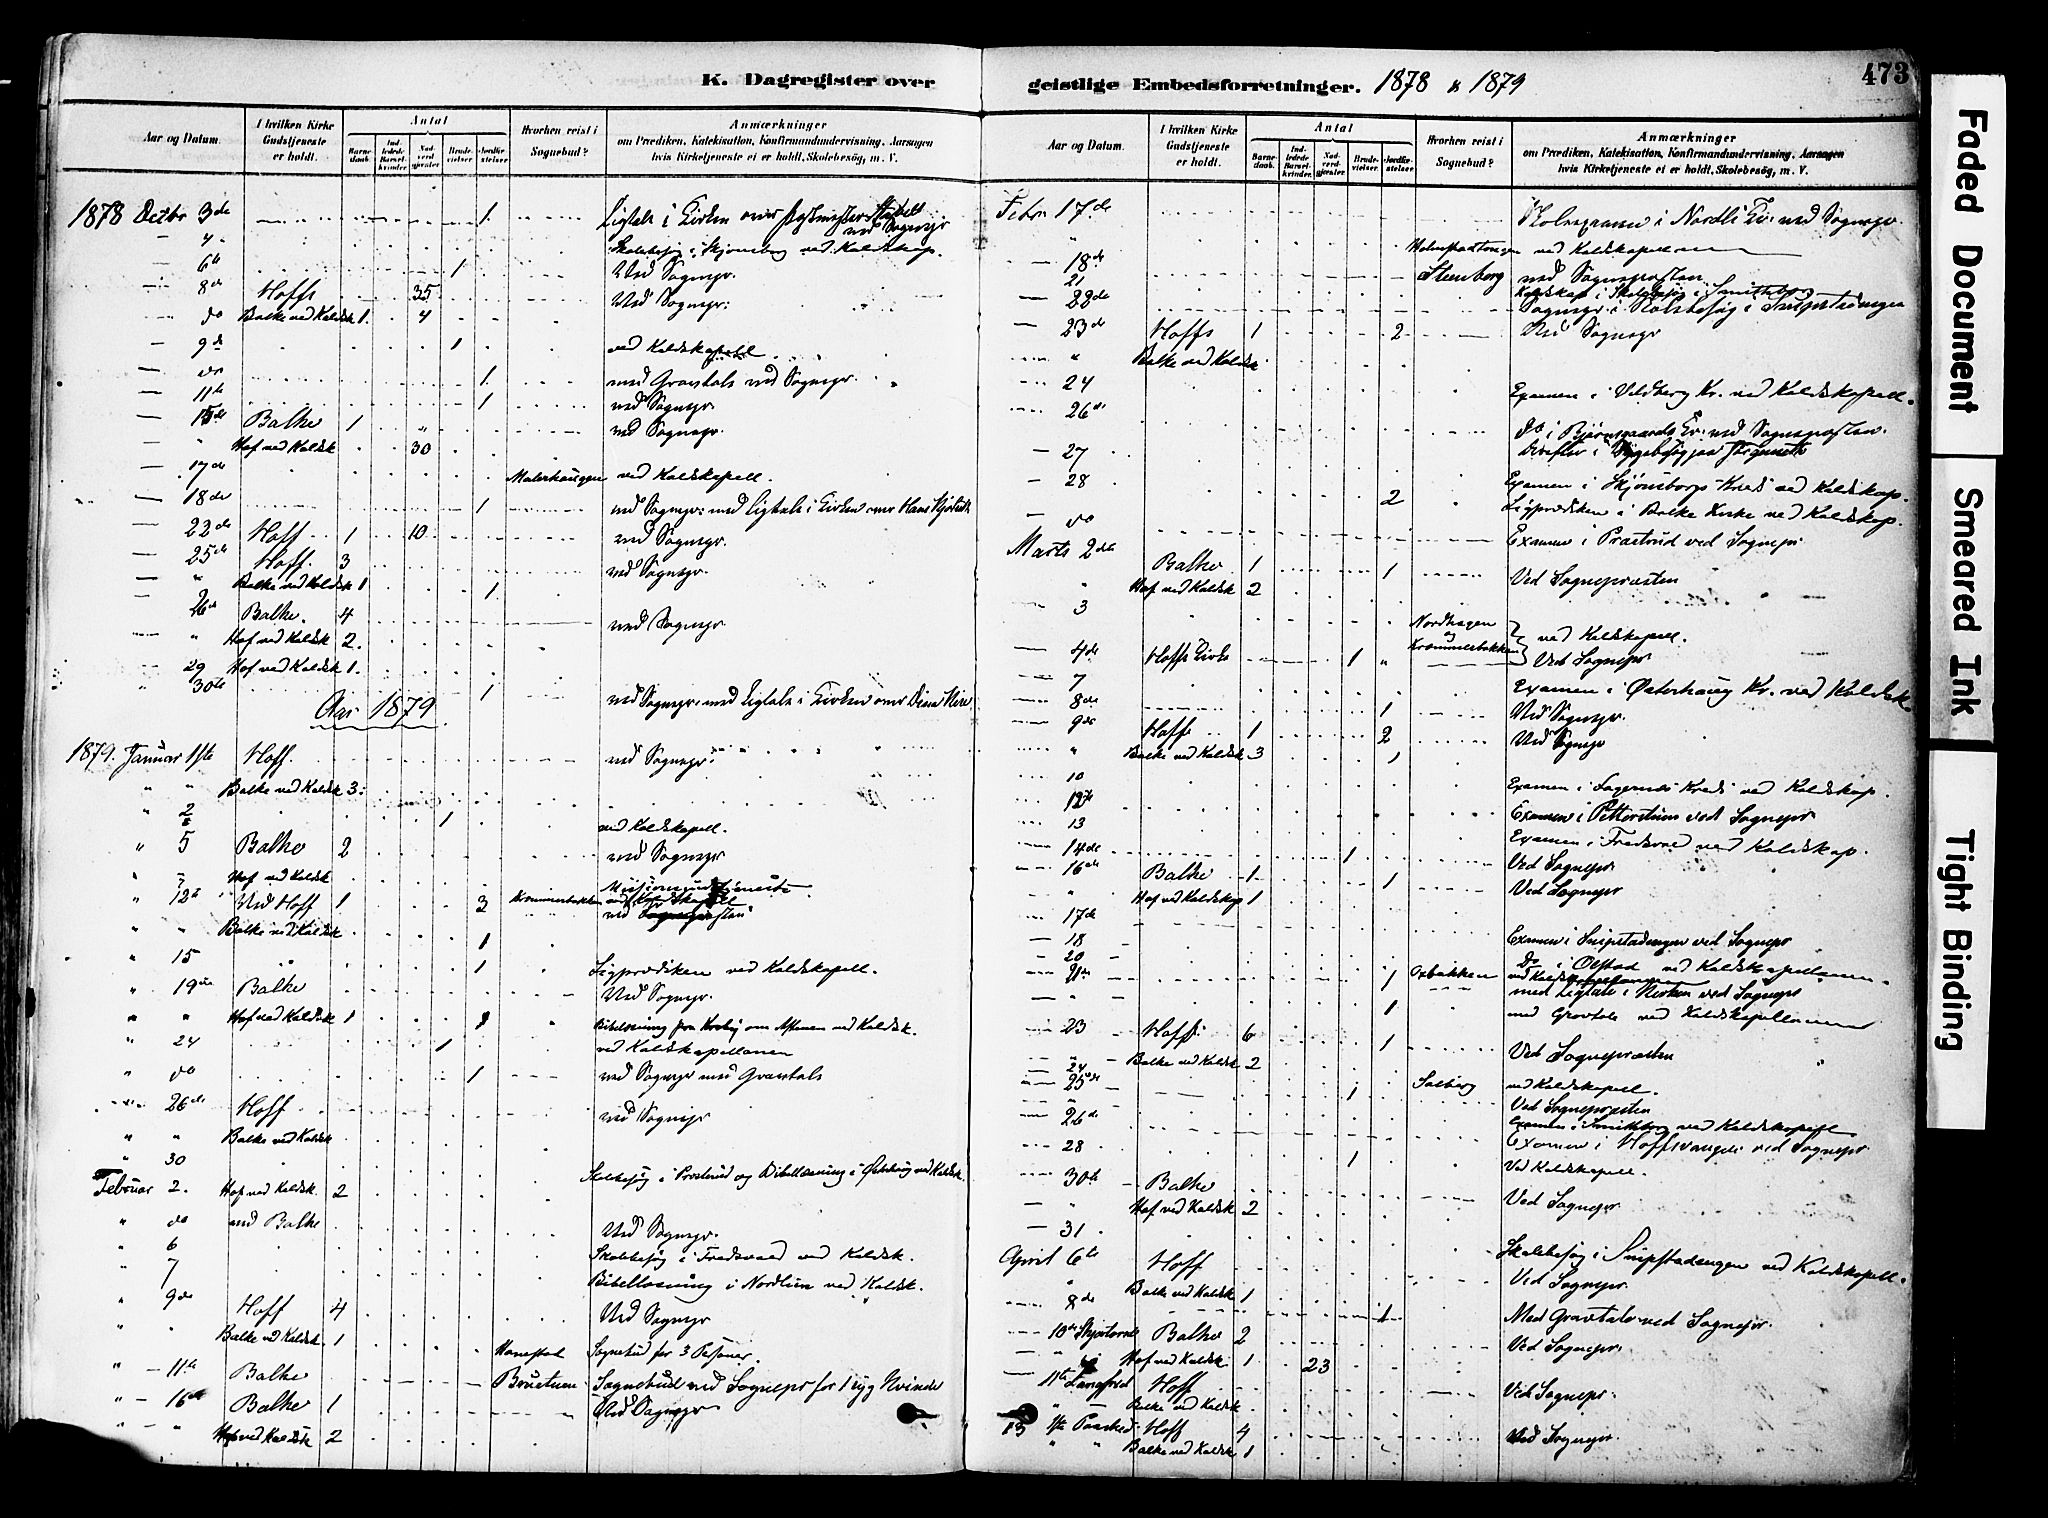 K. Dagregister over
Aar og Datum.
I hvilken Kirke Gudstjeneste er holdt.
Antal
Barnedaab.
Indledede Barselkvinder.
Nadverdgjester.
Brudevielser.
Jordfæstelser.
Hvorhen reist i Sognebud?
Anmærkninger
om Prædiken, Katekisation, Konfirmandundervisning, Aarsagen
hvis Kirketjeneste ei er holdt, Skolebesøg, m. V.
1878 Decbr 3de 1. Ligtale i Kirken over ved Sognepr
4 Skolebesøg i Skjønsberg ved Kaldskap.
6te 1 Ved Sognepr.
8de Hoffs 35 Ved Sognepr:
do Balke ved Kaldsk 1. 4
9de 1 ved Kaldskapell
do 1. med Gravtale ved Sognepr.
11te 1 ved Sognepr.
15de Balke 1 ved Sognepr.
" Hof ved Kaldsk 30
17de Malerhaugen ved Kaldskapell.
18de 1 ved Sognepr: med Ligtale i Kirken over Hans
22de Hoff 1 10 ved Sognepr.
25de Hoff. 3 ved Sognepr.
" Balke ved Kaldsk 1 1.
26de Balke. 4 ved Sognepr
" Hof ved Kaldsk 2.
29 Hof ved Kaldsk 1.
30te 1 ved Sognepr. med Ligtale i Kirken over
Aar 1879.
1879. Januar 1ste Hoff. ved Sognepr.
" " Balke ved Kaldsk 3.
" 2 1 ved Kaldskapell.
" 5 Balke 2 ved Sognepr
" " Hof ved Kaldsk Missionsgudstjeneste
" 12te Ved Hoff 1 Krommerbakken ved Kaldskapell
ved Sognepræsten
" " Balke ved Kaldsk. 1
" 15 1 Ligprædiken ved Kaldskapell.
" 19de Balke Ved Sognepr.
" " Hof ved Kaldsk 1 Bibellæsning paa om Aftenen ved Kaldsk.
" 24 1 ved Kaldskapellanen
" do 1 ved Sognepr med Gravtale
" 26de Hoff ved Sognepr
" " Balke ved Kaldsk
" 30 Skolebesøg i Præsterud og Bibellæsning i Østerhaug ved Kaldsk.
Februar 2. Hof ved Kaldsk. 2
" do ved Balke Ved Sognepr.
" 6 Skolebesøg i Fredsvoed ved Kaldsk.
" 7 Bibellæsning i Nordlien ved Kaldsk.
" 9de Hoff 4 Ved Sognepr
" " Balke ved Kaldsk. 1
Hanestad Sognebud for 3 Personer.
" 11te Balke Sognebud ved Sognepr for 1 syg Kvinde
" 16de Balke 1 Ved Sognepr
" " Hof ved Kaldsk 2
geistlige Embedsforretninger. 1878 & 1879
473
Aar og Datum.
I hvilken Kirke Gudstjeneste er holdt.
Antal
Barnedaab.
Indledede Barselkvinder.
Nadverdgjester.
Brudevielser.
Jordfæstelser.
Hvorhen reist i Sognebud?
Anmærkninger
om Prædiken, Katekisation, Konfirmandundervisning, Aarsagen
hvis Kirketjeneste ei er holdt, Skolebesøg, m. V.
Febr 17de Skoleexamen i Nordli Kr. ved Sognepr.
" Holmstadtengen ved Kaldskapellanen
18de Steenberg ved Sognepræsten
21 Kaldskap i Skolebesøg i Smidtsborg
22de Sognepr i Skolebesøg i Snipstadengen
23de Hoffs 1 2 Ved Sognepr
" Balke ved Kaldsk
24 Examen i Veldberg Kr. ved Kaldskapell.
26de do i Bjørnsgaards Kr. ved Sognepræsten.
27
28 Examen i Skjønsbergs Kreds ved Kaldskap.
do 2 Ligprædiken i Balke Kirke ved Kaldskap.
Examen i Præstrud ved Sognepr
Marts 2de Balke 1 1 Ved Sognepræsten
" Hof ved Kaldsk 2
3 Nordhagen og Krommerbakken ved Kaldskapell.
4de Hoffs Kirke 1 " Ved Sognepr
7 Examen i Østerhaug Kr. ved Kaldsk
8de 1 Ved Sognepr.
9de Hoffs 1 2 Ved Sognepr
" Balke ved Kaldsk 3 1
10 Examen i Fagernes Kreds ved Kaldskap.
12te Examen i Pettersteen ved Sognepr
13 Examen i Fredsvoed ved Kaldskap.
14de 1 Ved Sognepr.
16de Balke 1 1 Ved Sognepr
" Hof ved Kaldskap 1
17de
18 Examen i Snipstadengen ved Sognepr
20 Do i Ølstad ved Kaldskapellanen
21de 1 Oxbakken ved Kaldskapellanen
med Ligtale i Kirken ved Sognepr
" 1 med Gravtale ved Kaldskapellanen
23 Hoffs 6 1 Ved Sognepræsten
" Balke ved Kaldsk 2
24 Solberg ved Kaldskapell.
25de 1 Ved Sognepræsten
" Examen i Smidtborg ved Kaldskapell
26de Examen i Hoffsvangen ved Sognepr
28 1 Ved Kaldskapell.
30te Balke Ved Sognepr
" Hof ved Kaldsk 2
31 Skolebesøg i Snipstadengen ved Kaldskapell.
April 6te Hoff Ved Sognepr
" Balke ved Kaldsk 1
8de 1 Med Gravtale ved Sognepr.
10de Skjærtorsd Balke 2 Ved Sognepr.
" Hof ved Kaldsk 1 23
11te Langfred Hoff Ved Sognepr.
" Balke ved Kaldsk.
13 1ste Paasked. Hoff 4 Ved Sognepr.
" " Balke ved Kaldsk 1
Faded Document
Smeared Ink
Tight Binding